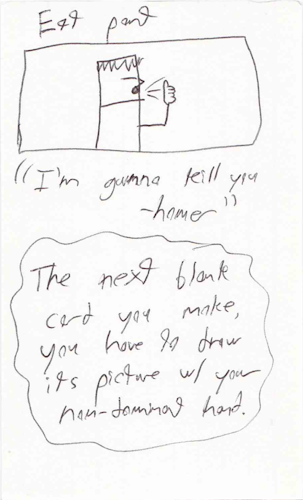 Eat pant
"I'm gunna kill you
-homer"
The next blank
card you make,
you have to draw
its picture w/ your
non-dominant hand.